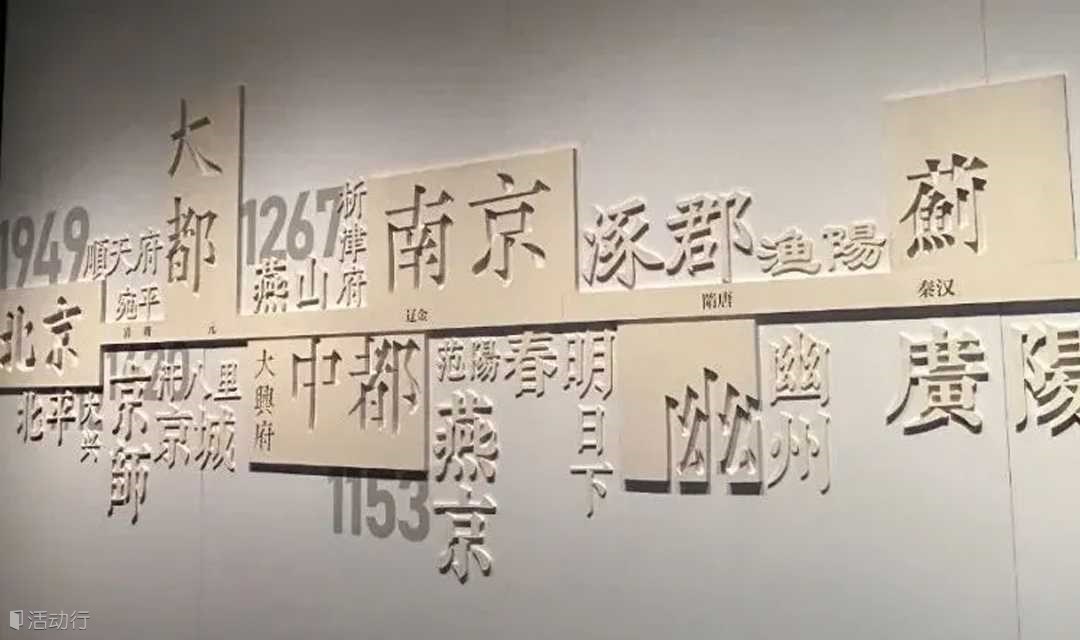 大都
1949
順天府
宛平
1267
析津府
燕山
南京
涿郡
漁陽
薊
北京
清 明
元
辽金
隋唐
秦汉
北平
大兴
1420
京師
八里
京城
大興府
中都
1153
范陽
燕京
春明
日下
幽
幽州
廣陽
活动行